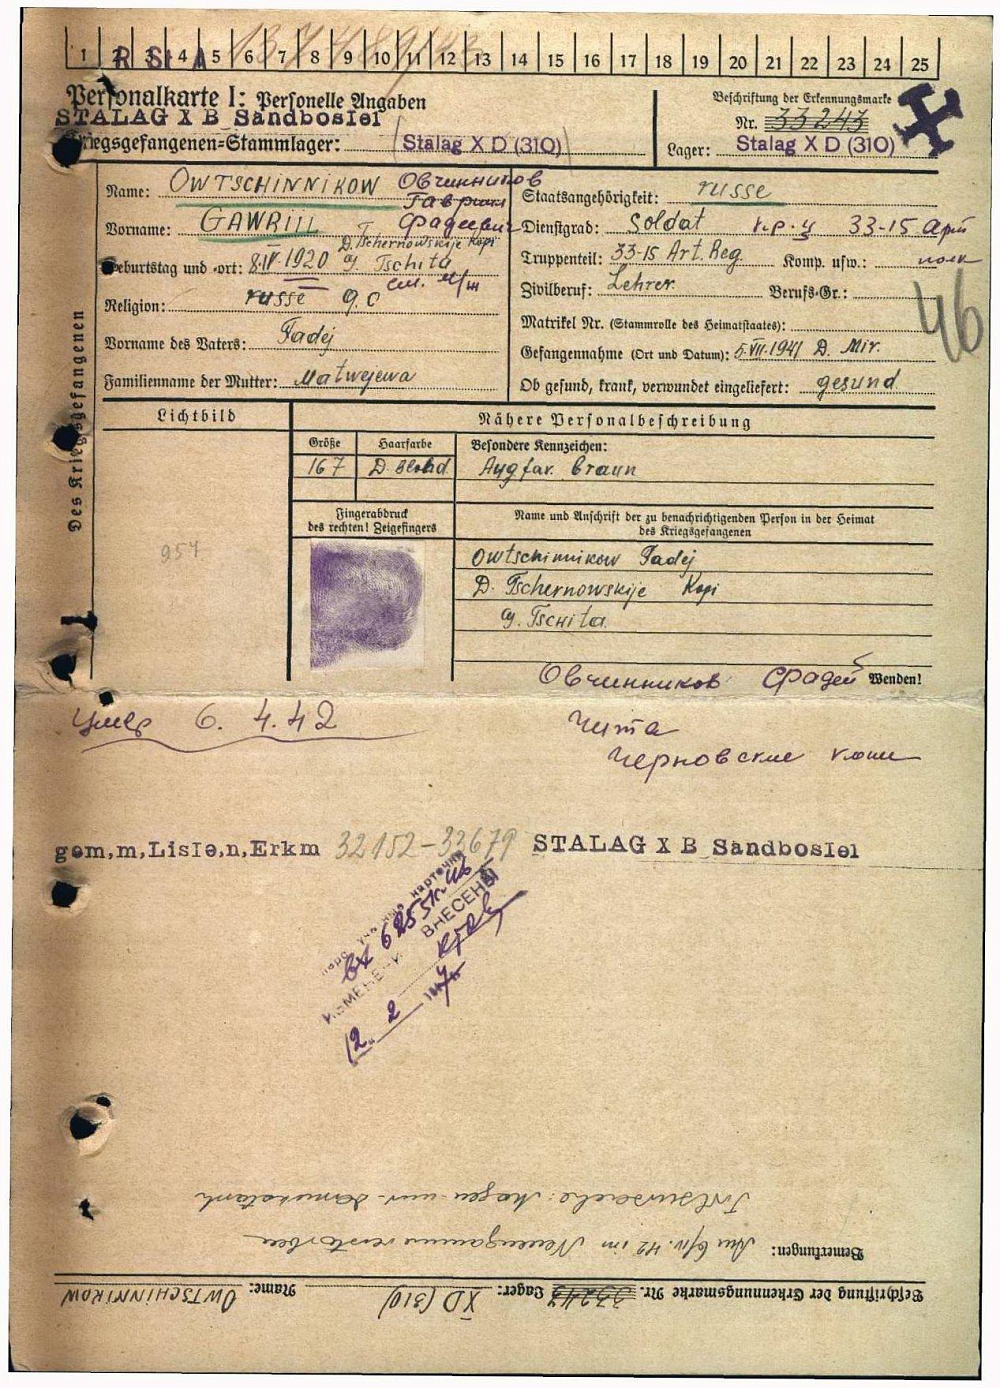 1 2 3 4 5 6 7 8 9 10 11 12 13 14 15 16 17 18 19 20 21 22 23 24 25
Personalkarte I: Personelle Angaben
STALAG X B Sandbostel
Kriegsgefangenen-Stammlager: Stalag X D (310)
Beschriftung der Erkennungsmarke
Nr. 33243
Lager: Stalag X D (310)
Des Kriegsgefangenen
Name: OWTSCHINNIKOW Овчинников
Vorname: GAWRIIL Гавриил Фадеевич
D. Tschernowskije Kopi
Geburtstag und -ort: 8.IV.1920 Tschita
Religion: russe g.o
Vorname des Vaters: Fadej
Familienname der Mutter: Matwejewa
Staatsangehörigkeit: russe
Dienstgrad: Soldat кр-ц 33-15 Арт
Truppenteil: 33-15 Art. Reg. Komp. usw.: полк
Zivilberuf: Lehrer Berufs-Gr.:
Matrikel Nr. (Stammrolle des Heimatstaates):
Gefangennahme (Ort und Datum): 5.VII.1941 D. Mir.
Ob gesund, krank, verwundet eingeliefert: gesund
46
Lichtbild
957
Nähere Personalbeschreibung
Größe Haarfarbe Besondere Kennzeichen:
167 D. Blond Augfar. braun
Fingerabdruck
des rechten! Zeigefingers
Name und Anschrift der zu benachrichtigenden Person in der Heimat
des Kriegsgefangenen
Owtschinnikow Fadej
D. Tschernowskije Kopi
Tschita
Овчинников Фадей Wenden!
Умер 6. 4. 42
Чита
Черновские копи
gem,m,Liste,n,Erkm 32152-33679 STALAG X B Sandbostel
ВНЕСЕНЫ
12. 2
Bemerkungen: Am 6/IV. 42 im Neuengamme verstorben
Todesursache: Magen- und Darmkatarrh
Beschriftung der Erkennungsmarke Nr. 33243 Lager: X D (310) Name: OWTSCHINNIKOW